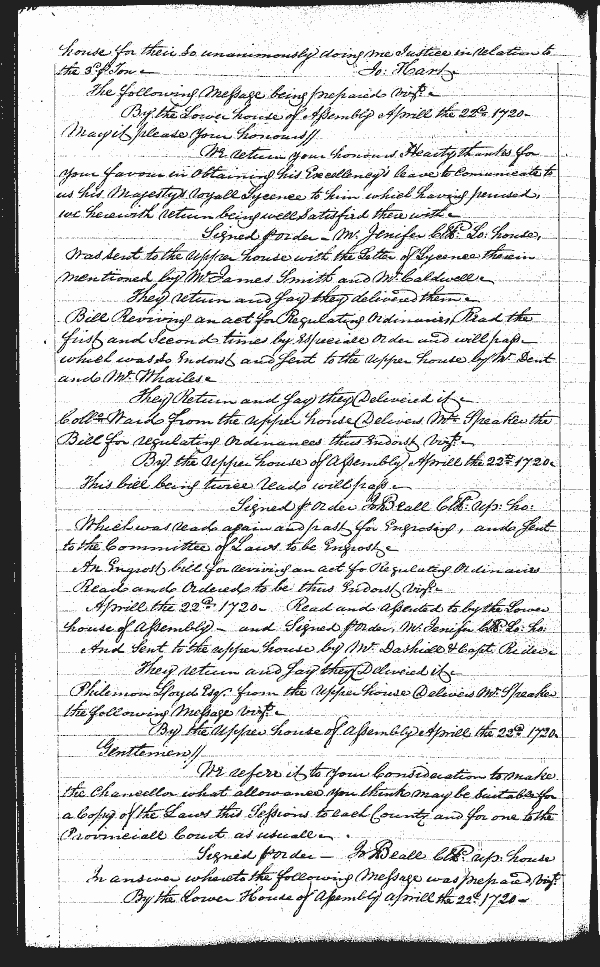 house for their So unanimously doing me Justice in relation to
the 3d of Jan Jo: Hart
The following Message being prepared vizt.
By the Lower house of Assembly Aprill the 22d 1720
May it please your honours//
We return your honours Hearty thanks for
your favour in Obtaining his Excellency's leave to Comunicate to
us his Majestys Royall Lycence to him which having perused,
we herewith return being well Satisfied therewith
Signed p order M. Jenifer Clk Lo: house,
Was sent to the upper house with the Letter of Lycence therein
mentioned by Mr James Smith and Mr Caldwell
They return and Say they delivered them
Bill Reviving an act for Regulating Ordinaries, Read the
first and Second times by Especiale Order and will pass
which was So Endorst and Sent to the upper house by Mr Dent
and Mr Whailes
They Return and Say they Delivered it
Collo Ward from the upper house Delivers Mr Speaker the
Bill for regulating Ordinances thus Endorst vizt.
By the Upper house of Assembly Aprill the 22d 1720
This bill being twice read will pass
Signed p Order Jo Beall Clk. up: ho:
Which was read again and past for Engrosing, and Sent
to the Committee of Laws to be Engrost
An Engrost bill for reviving an act fo Regulating Ordinaries
Read and Ordered to be thus Endorst vizt.
Aprill the 22d 1720 Read and assented to by the Lower
house of Assembly and Signed p Order, M. Jenifer Clk Lo: ho:
And Sent to the upper house by Mr. Dashiell & Capt. Rider
They return and Say they Delivered it
Philemon Lloyd Esqr. from the upper house Delivers Mr Speaker
the following Message vizt.
By the Upper house of Assembly Aprill the 22d 1720
Gentlemen//
We refere it to your Consideration to make
the Chancellor what allowance you think may be Suitable for
a Copy of the Laws this Sessions to each County and for one to the
Provinciall Court as usuall
Signed p Order Jo Beall Clk. up: house
In answer whereto the following Message was prepared vizt.
By the Lower House of Assembly aprill the 22d 1720